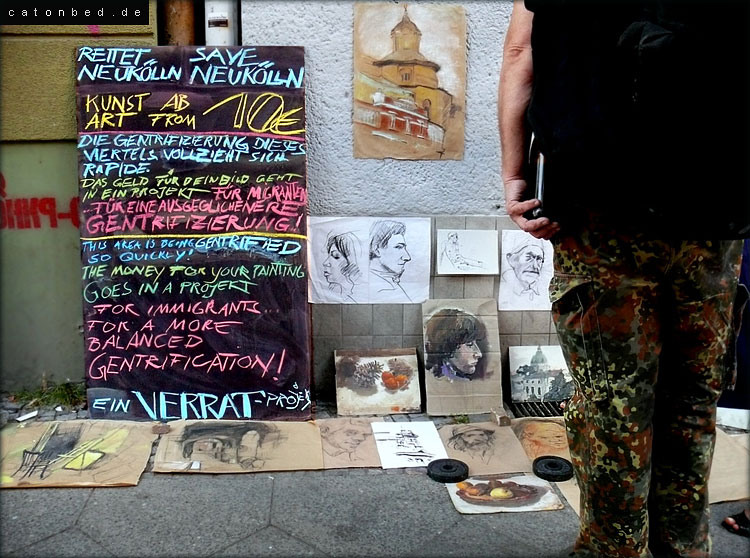 catonbed.de
RETTET SAVE
NEUKÖLLN NEUKÖLLN
KUNST AB 10€
ART FROM
DIE GENTRIFIZIERUNG DIESES
VIERTELS VOLLZIEHT SICH
RAPIDE.
DAS GELD FÜR DEIN BILD GEHT
IN EIN PROJEKT FÜR MIGRANTEN
..FÜR EINE AUSGEGLICHENERE
GENTRIFIZIERUNG!
THIS AREA IS BEING GENTRIFIED
SO QUICKLY!
THE MONEY FOR YOUR PAINTING
GOES IN A PROJEKT
FOR IMMIGRANTS...
FOR A MORE
BALANCED
GENTRIFICATION!
EIN VERRAT-PROJEKT